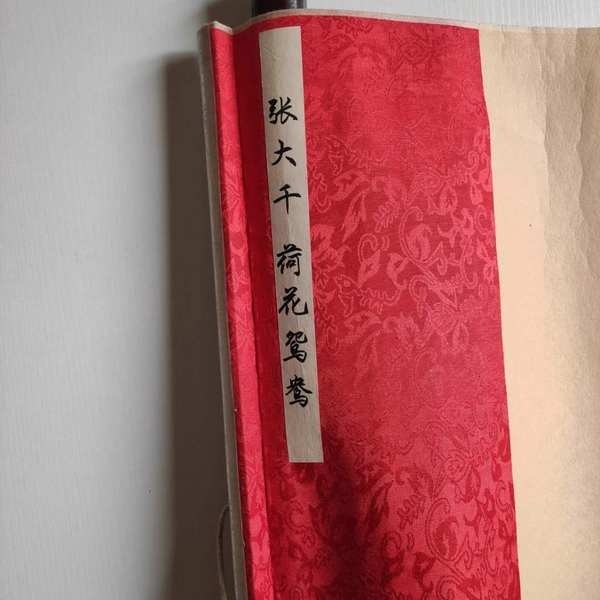 张大千 荷花鸳鸯